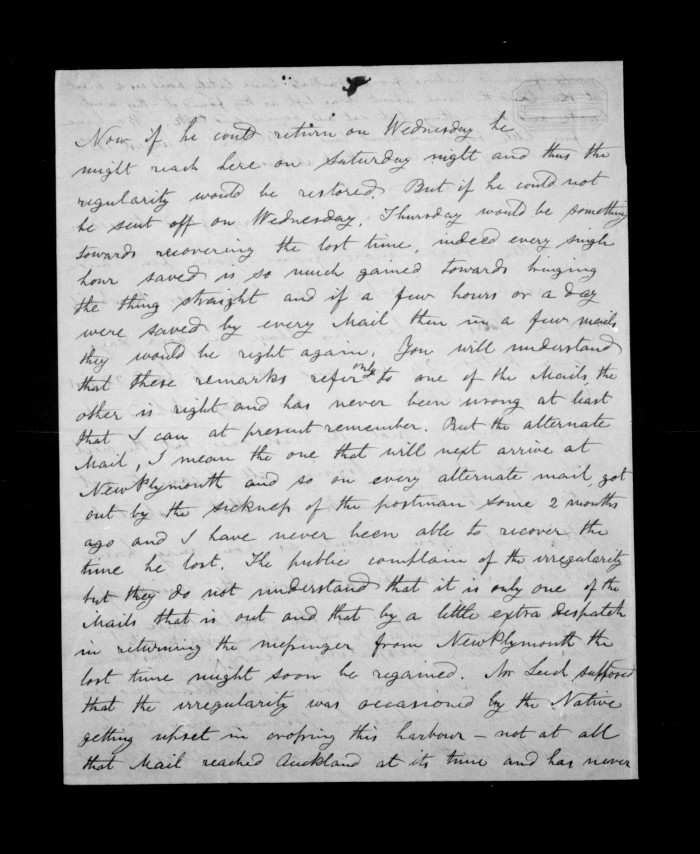 Now if he could return on Wednesday he
might reach here on Saturday night and thus the
regularity would be restored. But if he could not
be sent off on Wednesday, Thursday would be something
towards recovering the lost time, indeed every single
hour saved is so much gained towards bringing
the thing straight and if a few hours or a day
were saved by every Mail then in a few mails
they would be right again. You will understand
that these remarks refer only to one of the Mails, the
other is right and has never been wrong at least
that I can at present remember. But the alternate
Mail, I mean the one that will next arrive at
New Plymouth and so on every alternate mail, got
out by the sickness of the postman some 2 months
ago and I have never been able to recover the
time he lost. The public complain of the irregularity
but they do not understand that it is only one of the
Mails that is out and that by a little extra despatch
in returning the messenger from New Plymouth the
lost time might soon be regained. Mr supposed
that the irregularity was occasioned by the Native
getting upset in crossing this harbour – not at all
that Mail reached Auckland at its time and has never